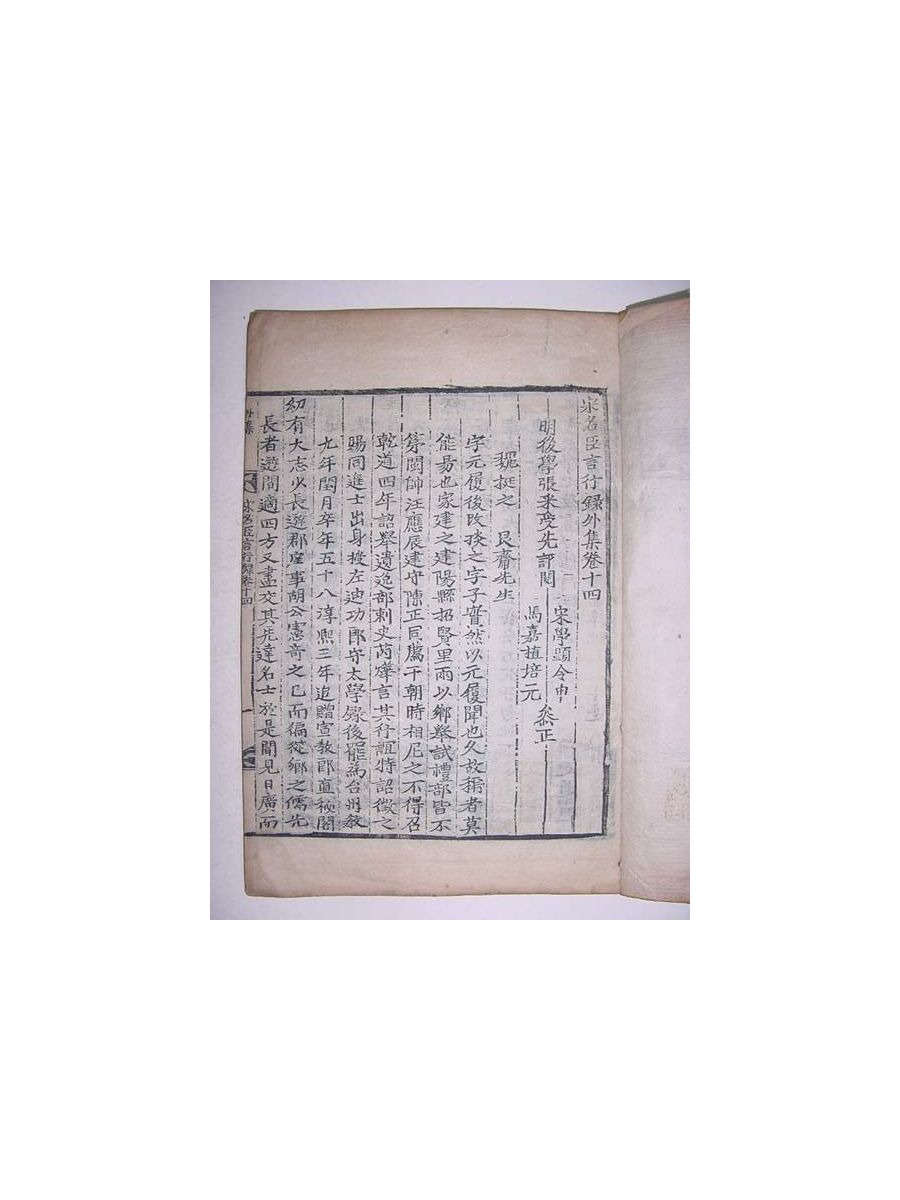 宋名臣言行錄外集卷十四
明後學張采受先評閱
宋學顯令申
馬嘉植培元
叅正
魏挻之 艮齋先生
字元履後改挻之字子實然以元履聞也久故稱者莫
能易也家建之建陽縣招賢里兩以鄉舉試禮部皆不
第閩帥汪應辰建守陳正同薦于朝時相尼之不得召
乾道四年詔舉遺逸部刺史芮燁言其行誼特詔徵之
賜同進士出身授左迪功郎守太學錄後罷為台州教
九年閏月卒年五十八淳熙三年追贈宣教郎直秘閣
幼有大志少長遊郡庠事胡公憲奇之已而徧從鄉之儒先
長者遊間適四方又盡交其先達名士於是聞見日廣而
外集 宋名臣言行錄卷十四